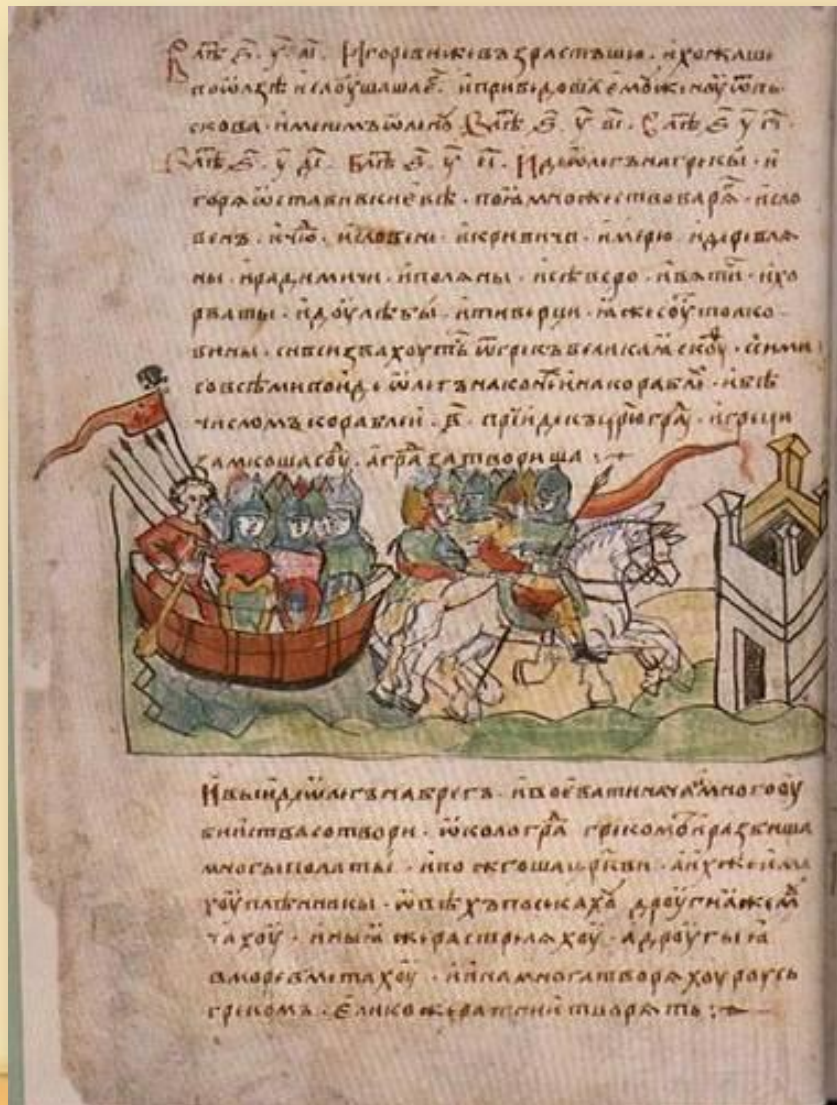 В лѣⷮ ҂ѕ҃ у҃ аі҃ · Игореви же възрастъшю · и хожаше
по ѡлзѣ и слоушаша е҃ · и приведоша ємоу женоу ѿ пь
скова · именемъ ѡленоу В лѣⷮ ҂ѕ҃ у҃ ві҃ · В лѣⷮ ҂ѕ҃ у҃ гі҃ ·
В лѣⷮ ҂ѕ҃ у҃ ді҃ · В лѣⷮ ҂ѕ҃ у҃ еі҃ · Иде ѡлегъ на грекы · и
горѧ ѡставив киевѣ · поꙗ множество варѧ · и сло
венъ · и чюⷣ · и словене · и кривичи · и мерю · и деревлѧ
ны · и радимичи · и полѧны · и сѣверо · и вѧтичи · и хо
рваты · и доулѣбы · и тиверци · ꙗже соуть толко
вины · си вси звахоуть ѿ грекъ великаꙗ скоуⷴ · с сими
со всѣми поиде ѡлегъ на конеⷯ и на кораблеⷯ · и бѣ
числомъ кораблеи · в҃ · прїиде къ црюграⷣ · и греци
замкоша соуⷣ · а граⷣ затвориша :~
И выиде ѡлегъ на брегъ · и воевати нача · и много оу
биїства сотвори · ѡколо граⷣ грекомъ · и разбиша
многы полаты · и пожгоша цр҃кви · а их же има
хоу плѣнникы · ѡвѣхъ посекахоу дроугиꙗ же моу
чахоу · иныꙗ же растрелѧхоу · а дроугыꙗ
в море вметахоу · и ина многа творѧхоу роусь
грекомъ · елико же ратнии творѧть :~